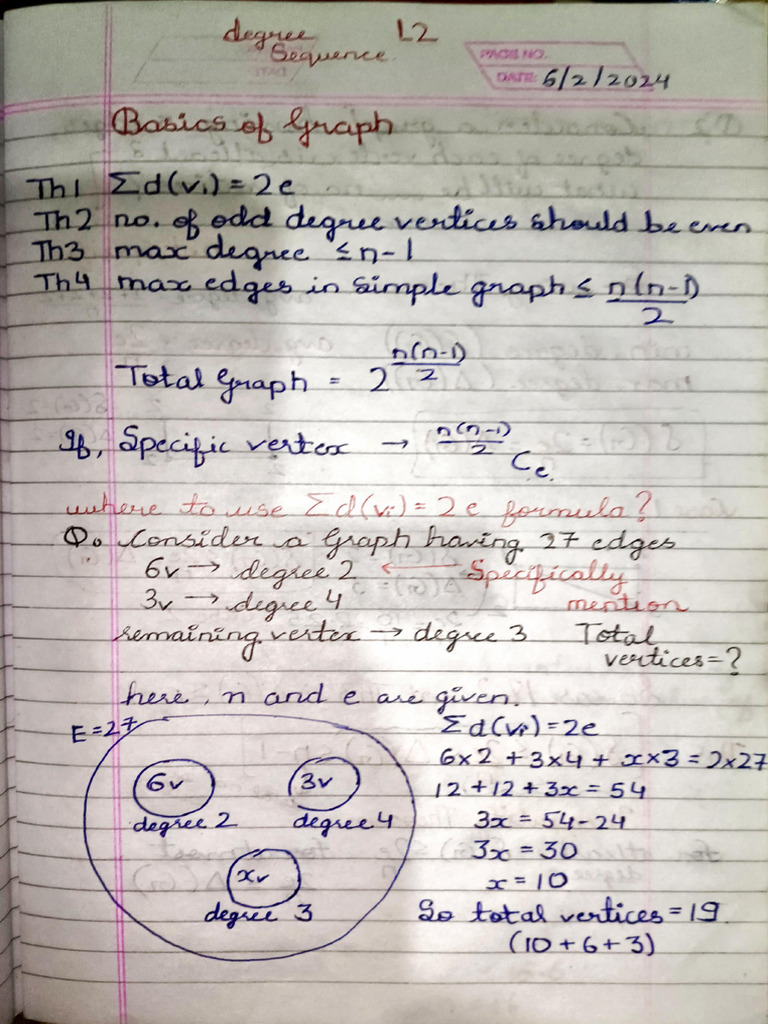 degree L2
Sequence
PAGE NO.
DATE: 5/2/2024
Basics of Graph
Th1 Σd(vi) = 2e
Th2 no. of odd degree vertices should be even
Th3 max degree ≤ n-1
Th4 max edges in simple graph ≤ n(n-1)/2
Total Graph = 2^(n(n-1)/2)
If, Specific vertex → n(n-1)/2 Ce
where to use Σd(vi) = 2e formula?
Q. Consider a Graph having 27 edges
6v → degree 2 ← Specifically
3v → degree 4 mention
remaining vertex → degree 3 Total
vertices = ?
here, n and e are given.
E = 27
6v 3v
degree 2 degree 4
xv
degree 3
Σd(vi) = 2e
6×2 + 3×4 + x×3 = 2×27
12 + 12 + 3x = 54
3x = 54-24
3x = 30
x = 10
So total vertices = 19
(10 + 6 + 3)